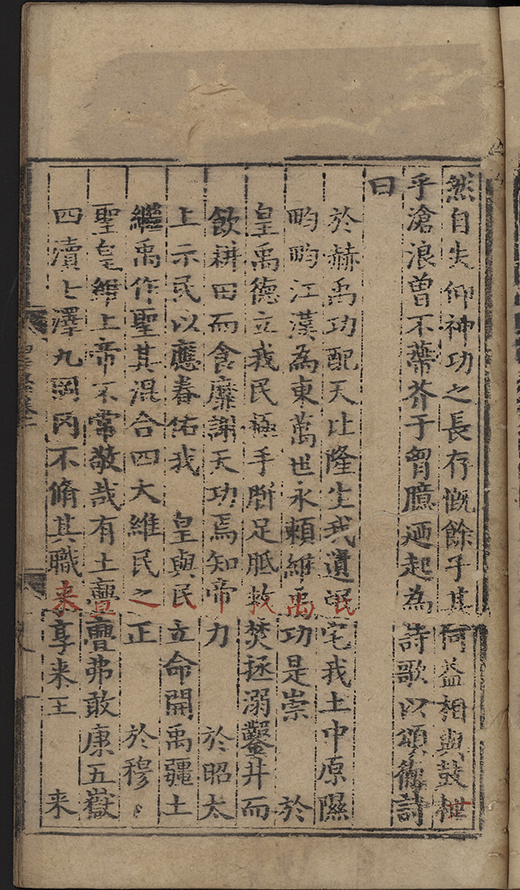 然自失仰神功之長存慨餘子其何益相與鼓枻
乎滄浪曾不蔕芥于胷臆廼起為詩歌以頌德詩
曰
於赫禹功配天比隆生我遺氓宅我土中原隰
畇畇江漢為東萬世永賴維禹功是崇 於
皇禹德立我民極手胼足胝救焚拯溺鑿井而
飲耕田而食靡謝天功焉知帝力 於昭太
上示民以應眷佑我 皇與民立命開禹疆土
繼禹作聖其混合四大維民之正 於穆〻
聖皇維上帝不常敬哉有土亹亹弗敢康五嶽
四瀆七澤九岡罔不脩其職来享来王 来